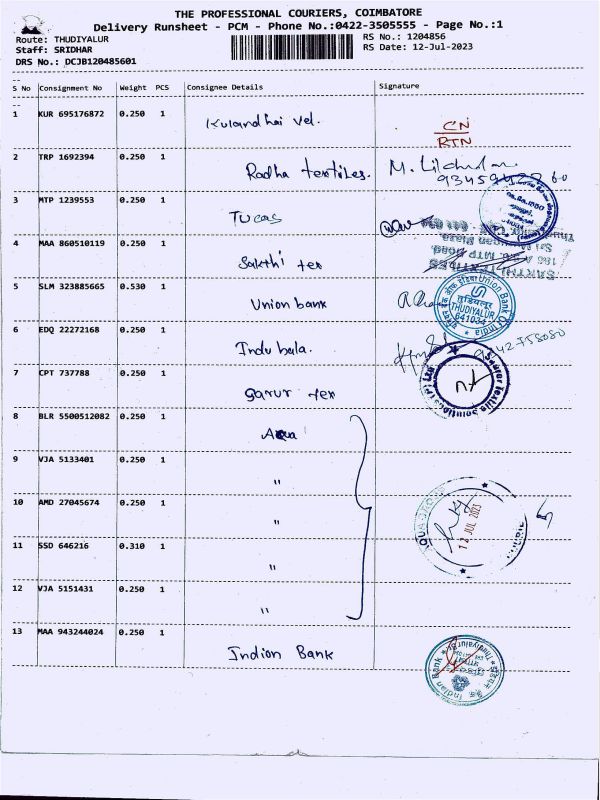 THE PROFESSIONAL COURIERS, COIMBATORE
Delivery Runsheet - PCM - Phone No.:0422-3505555 - Page No.:1
Route: THUDIYALUR
RS No.: 1204856
Staff: SRIDHAR
RS Date: 12-Jul-2023
DRS No.: DCJB120485601
S No Consignment No Weight PCS Consignee Details Signature
1 KUR 695176872 0.250 1 Kulandhai vel.
CN
RTN
2 TRP 1692394 0.250 1 Radha textiles.
3 MTP 1239553 0.250 1 Tucas
4 MAA 860510119 0.250 1 Sakthi tex
SAKTHI TEXTILES
MTP Road,
5 SLM 323885665 0.530 1 Union bank
Union Bank Of India
THUDIYALUR
641034
6 EDQ 22272168 0.250 1 Indu bala.
7 CPT 737788 0.250 1 Sarur tex
8 BLR 5500512082 0.250 1 Aqua
9 VJA 5133401 0.250 1 "
10 AMD 27045674 0.250 1 "
12 JUL 2023
11 SSD 646216 0.310 1 "
12 VJA 5151431 0.250 1 "
13 MAA 943244024 0.250 1 Indion Bank
Indian Bank